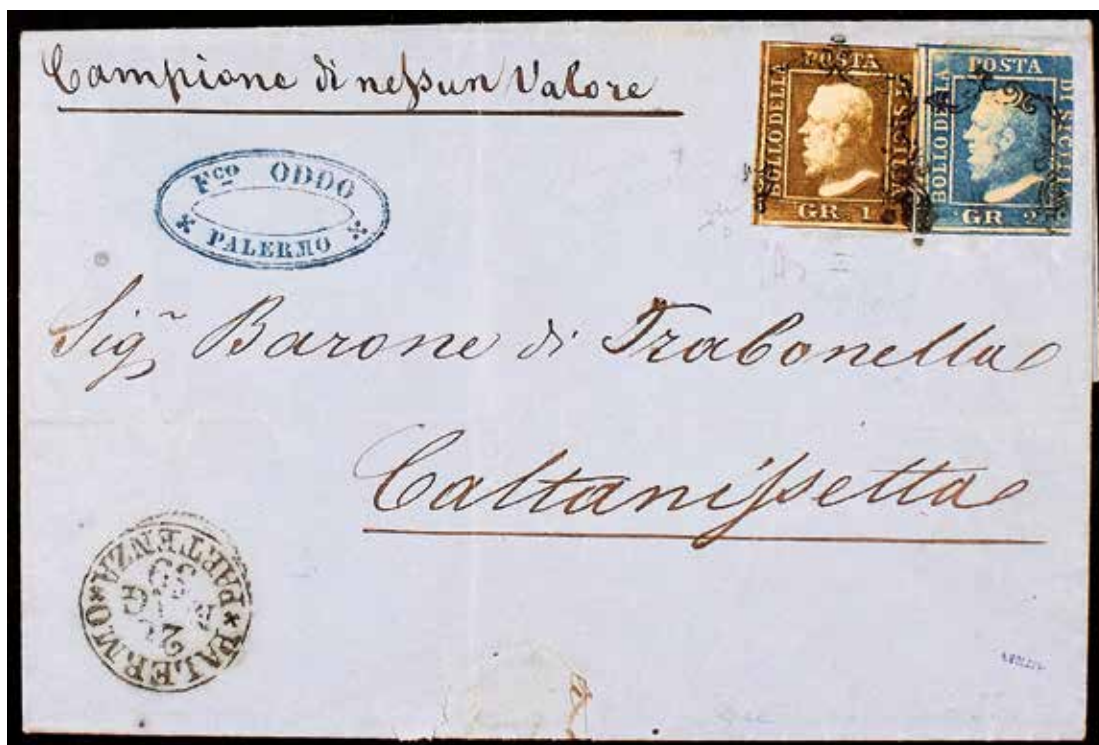 Campione di neſsun Valore
BOLLO DELLA POSTA DI SICILIA
GR. 1
BOLLO DELLA POSTA DI SICILIA
GR. 2
Fco ODDO
PALERMO
Sigr Barone di Trabonella
Caltaniſsetta
PALERMO
PARTENZA